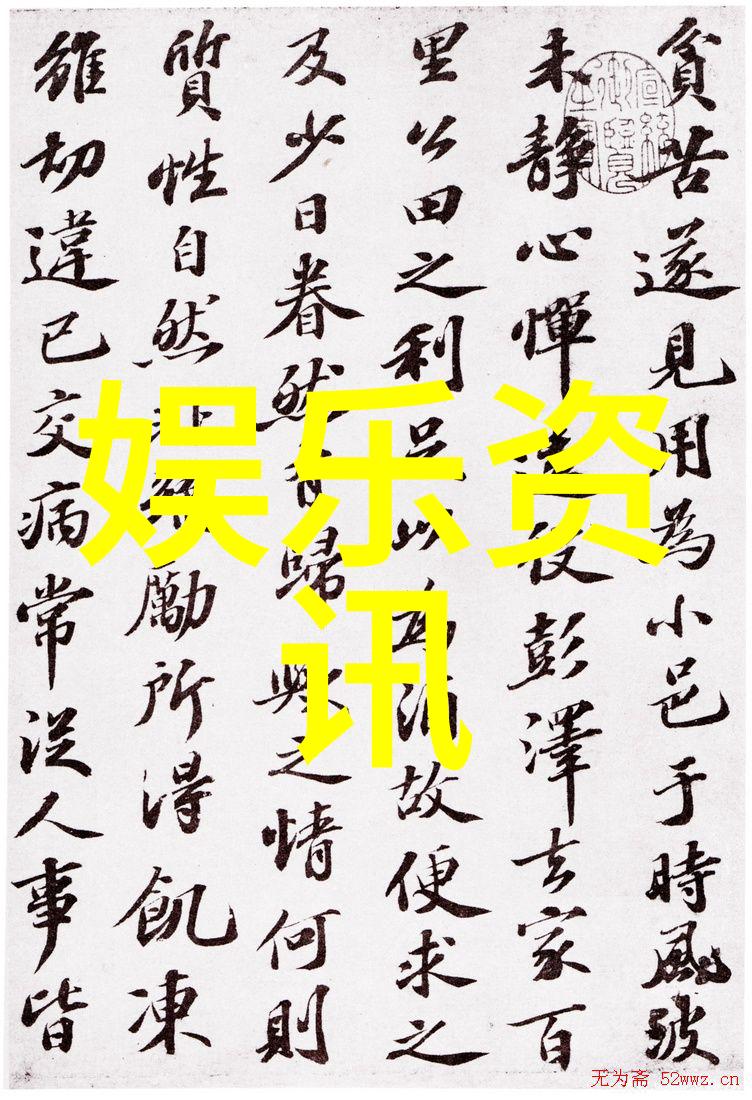 貧苦遂見用為小邑于時風波
未靜心憚役彭澤去家百
里公田之利足以為酒故便求之
及少日眷然有歸歟之情何則
質性自然非勵所得飢凍
雖切違已交病常從人事皆
娱乐资
讯
无为斋 52wwz.cn